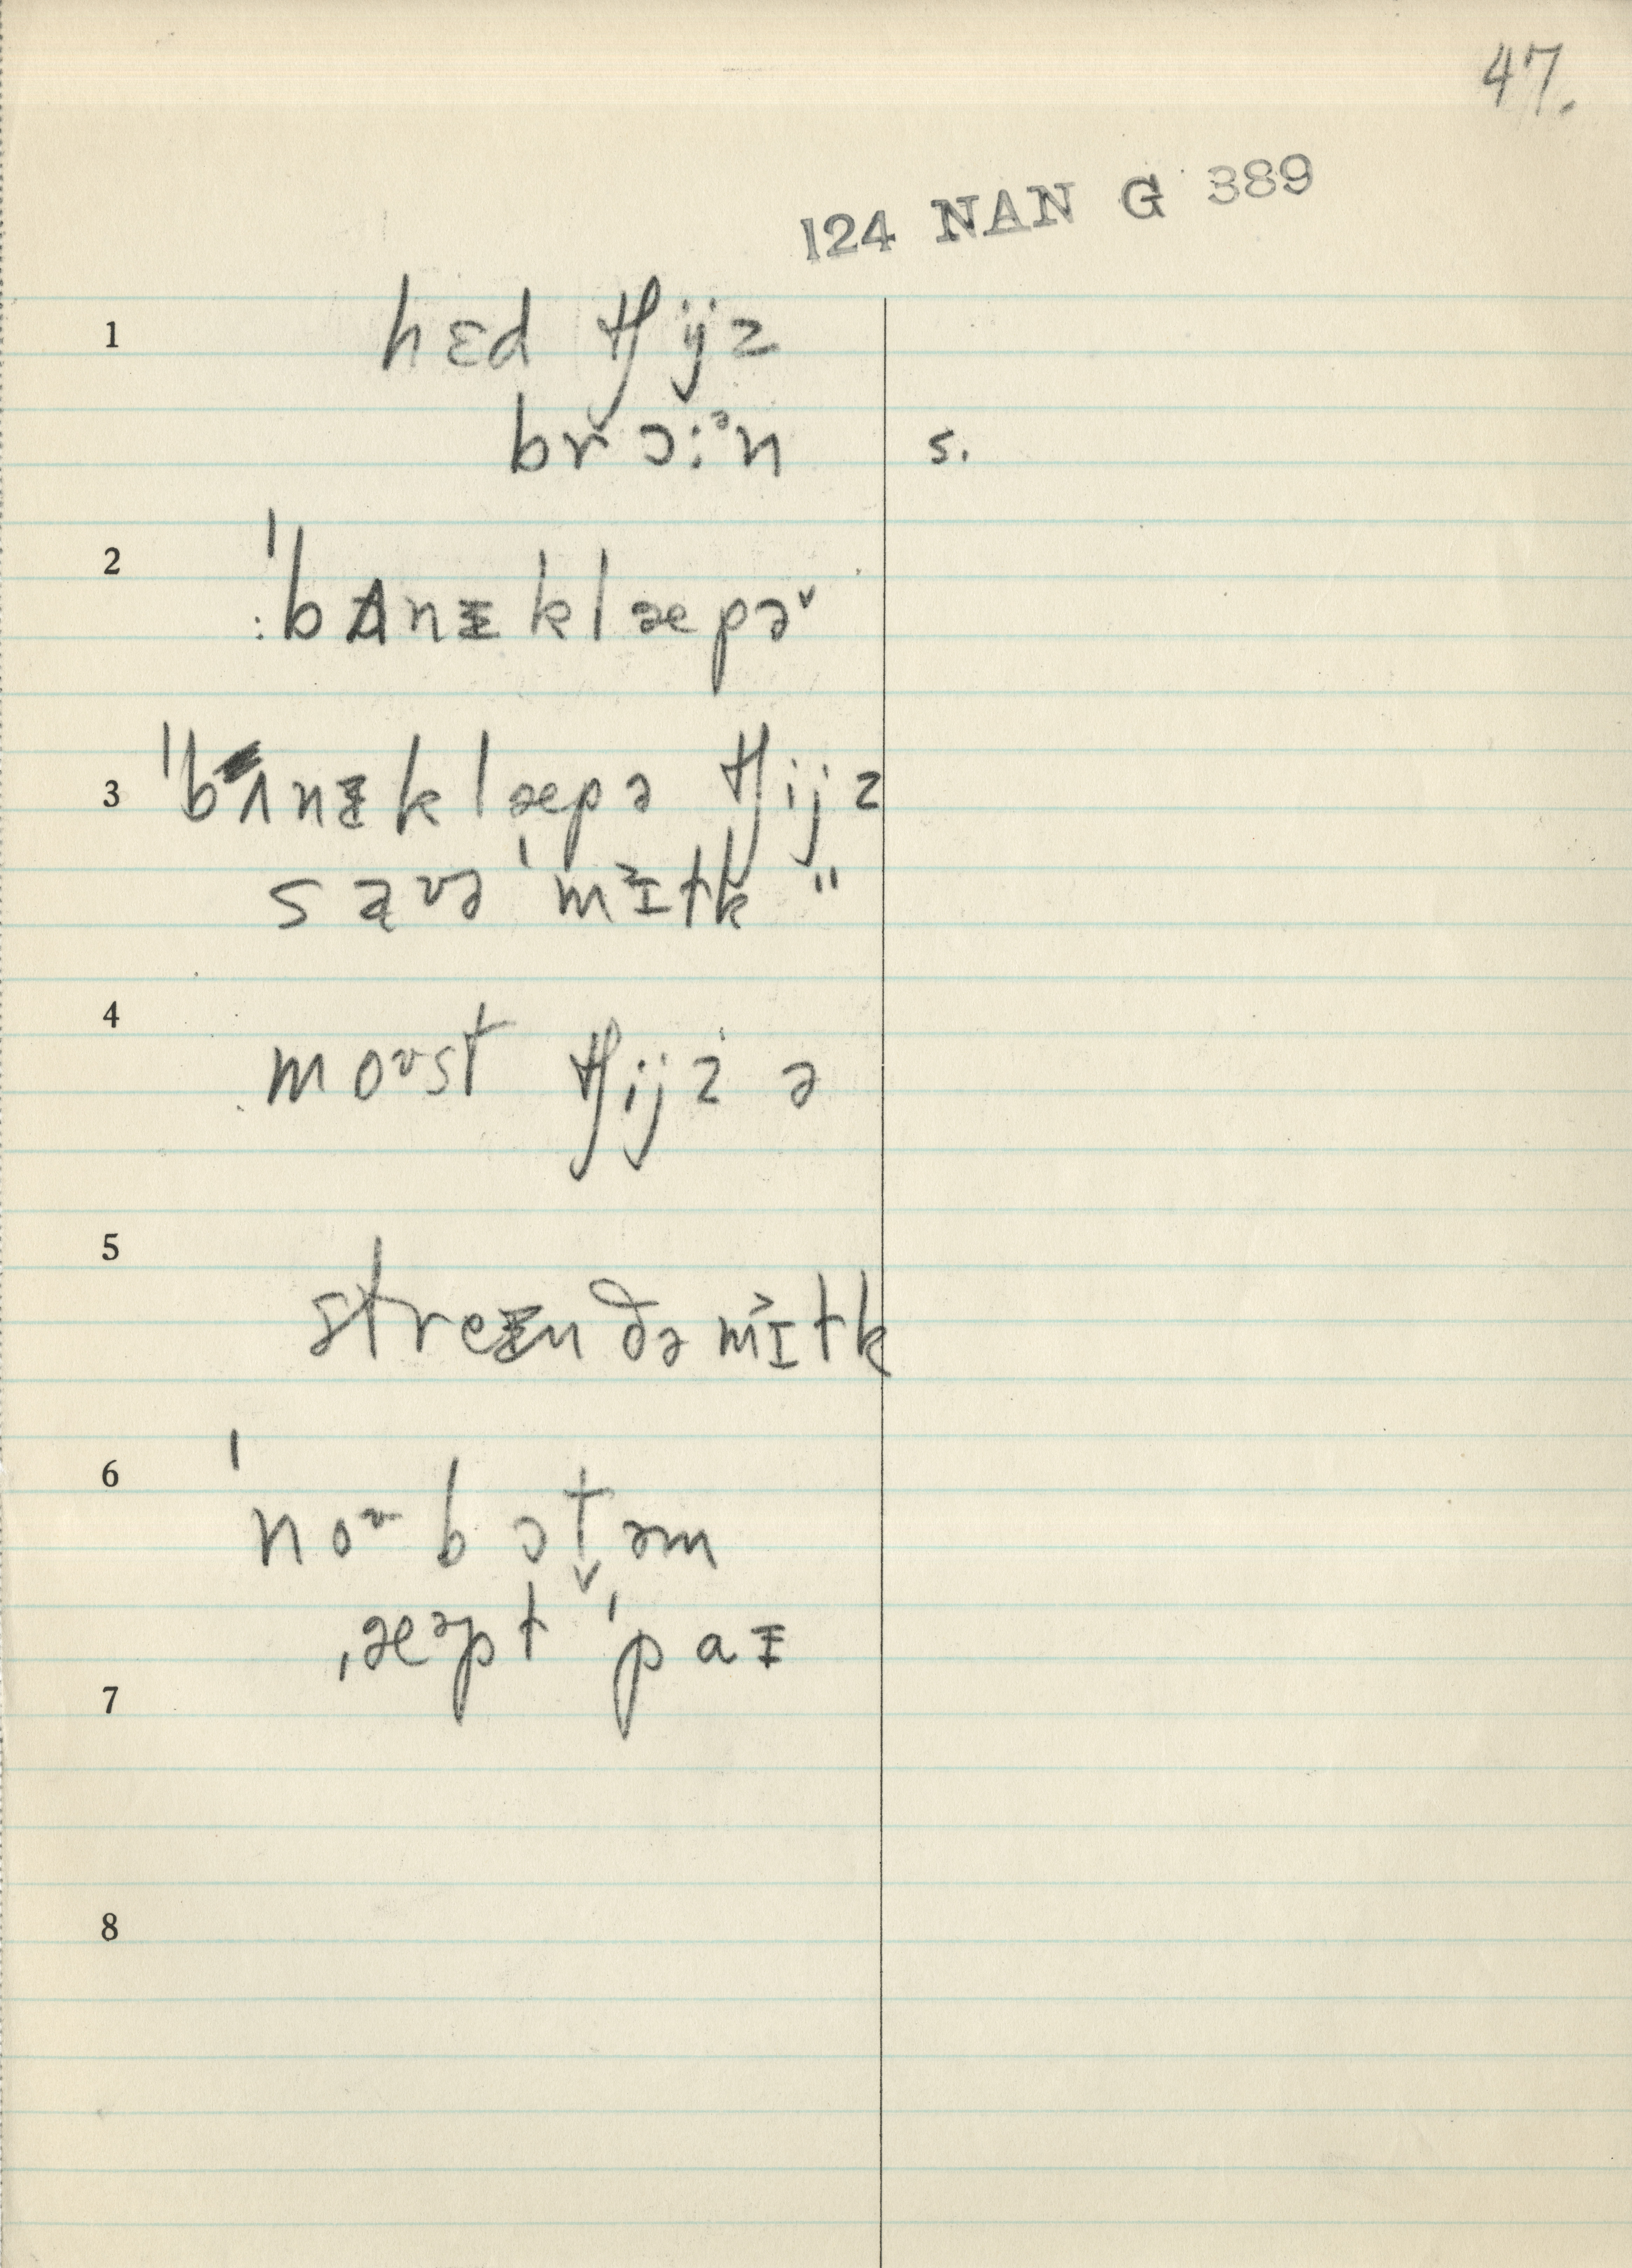 47.
124 NAN G 389
1 hɛd tʃijz
brɔ:ᵊn s.
2 ˈbʌnᵻklæpə˅
3 ˈbʌnᵻklæpə tʃijz
saʊə ˈmɪ˃ɫk "
4 moʊst tʃijz ə
5 streᵻn ðə mɪ˃ɫk
6 ˈnoʊbɔt̬əm
ˌæᵊpɫ ˈpaᵻ
7
8